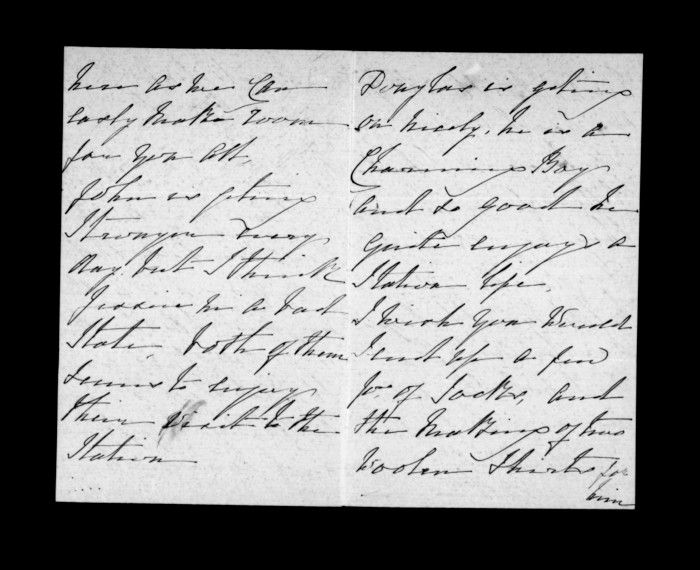 here as we can
easly make room
for you all,
John is geting
Stronger every
day, but I think
Jessie in a bad
State, both of them
seems to enjoy
their visit to the
Station
Douglas is geting
on nicely, he is a
Charming Boy
and so good he
quite enjoys a
Station life,
I wish you would
Send up a few
prs of Socks, and
the making of two
woolen Shirts for
him